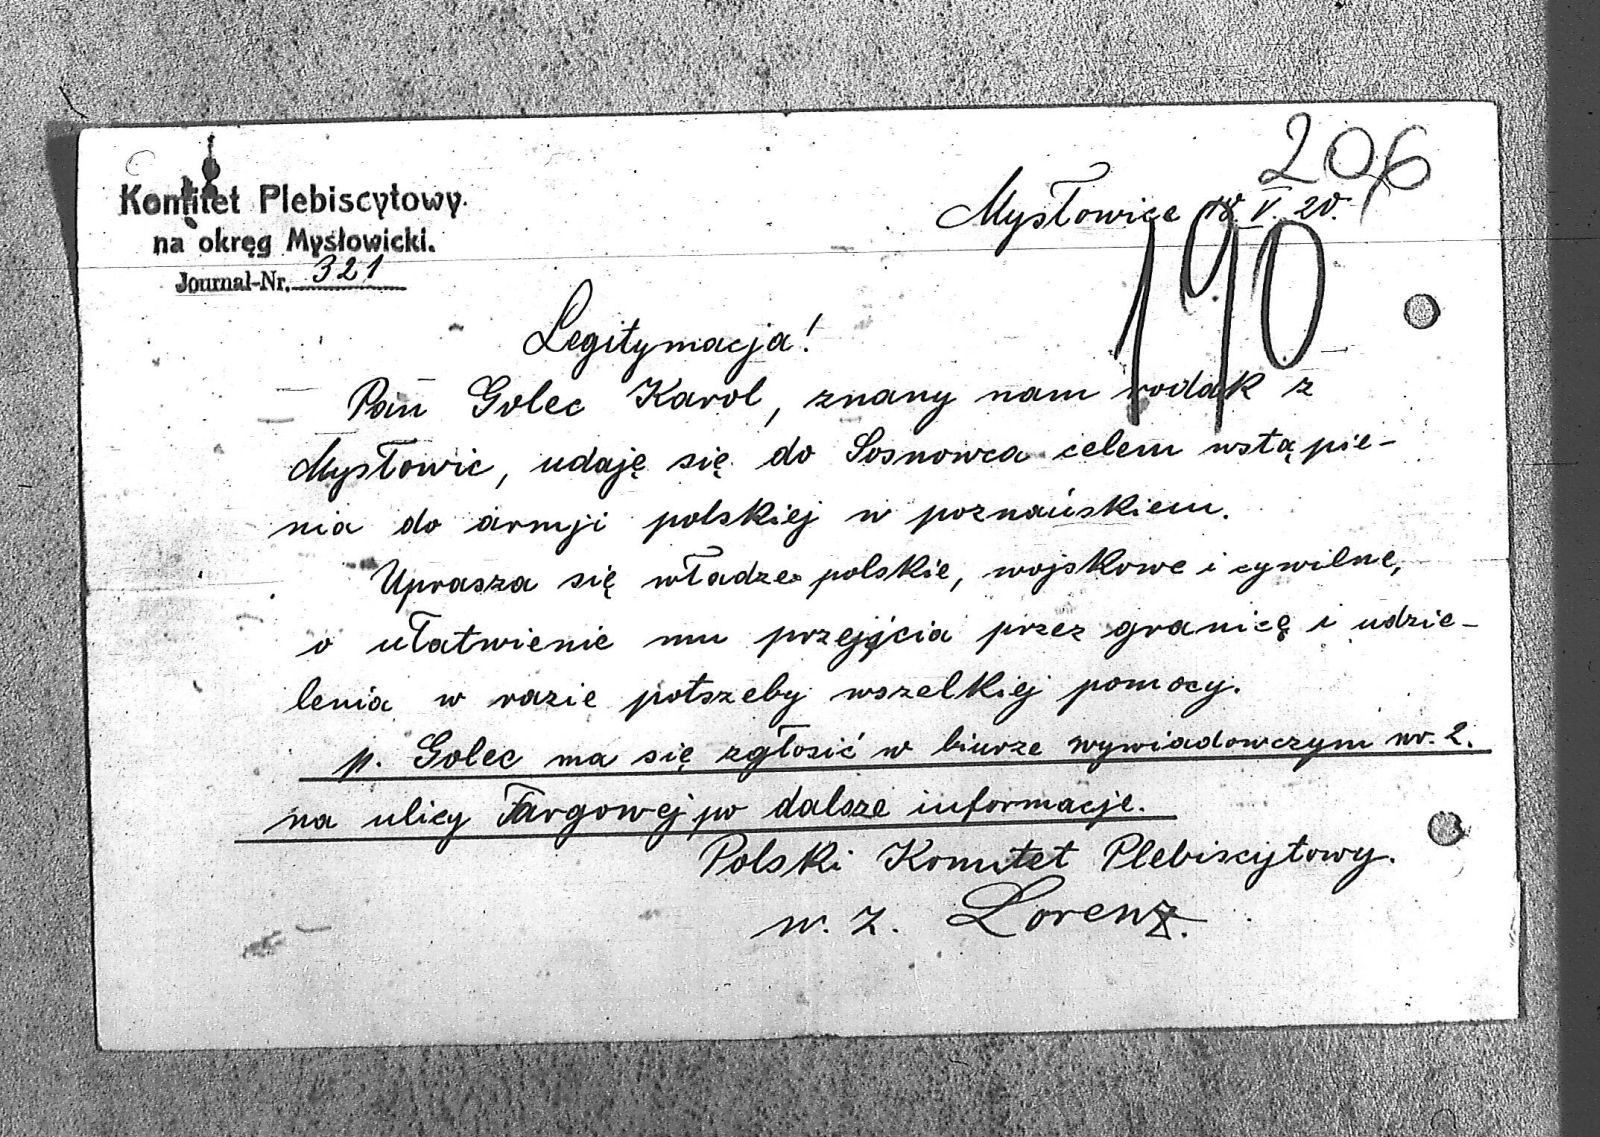 206
Komitet Plebiscytowy
na okręg Mysłowicki.
Journal-Nr. 321
Mysłowice 18 V. 20.
190
Legitymacja!
Pan Golec Karol, znany nam rodak z
Mysłowic, udaję się do Sosnowca celem wstąpie-
nia do armji polskiej w poznańskiem.
Uprasza się władze polskie, wojskowe i cywilne,
o ułatwienie mu przejścia przez granicę i udzie-
lenia w razie potszeby wszelkiej pomocy.
p. Golec ma się zgłosić w biurze wywiadowczym nr. 2.
na ulicy Targowej po dalsze informacje.
Polski Komitet Plebiscytowy.
w. z. Lorenz.